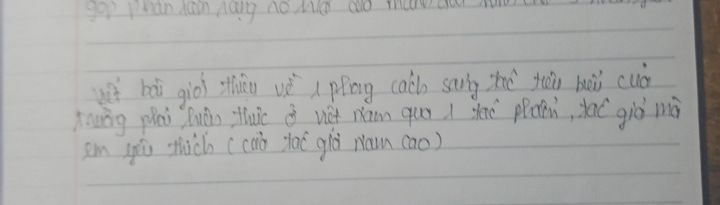 góp phần làm nâng
viết bài giới thiệu về 1 phong cách sáng tác tiêu biểu của
trường phái hiện thực ở việt nam qua 1 tác phẩm, tác giả mà
em yêu thích (của tác giả Nam Cao)